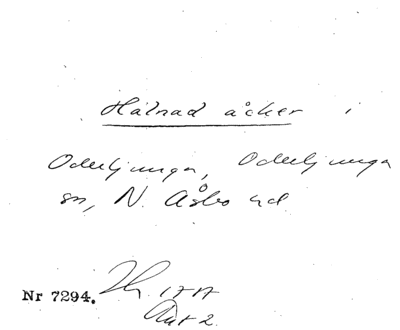 Hålnad åcker i
Oderljunga, Oderljunga
sn, N. Åsbo hd
Nr 7294.
Akt 2